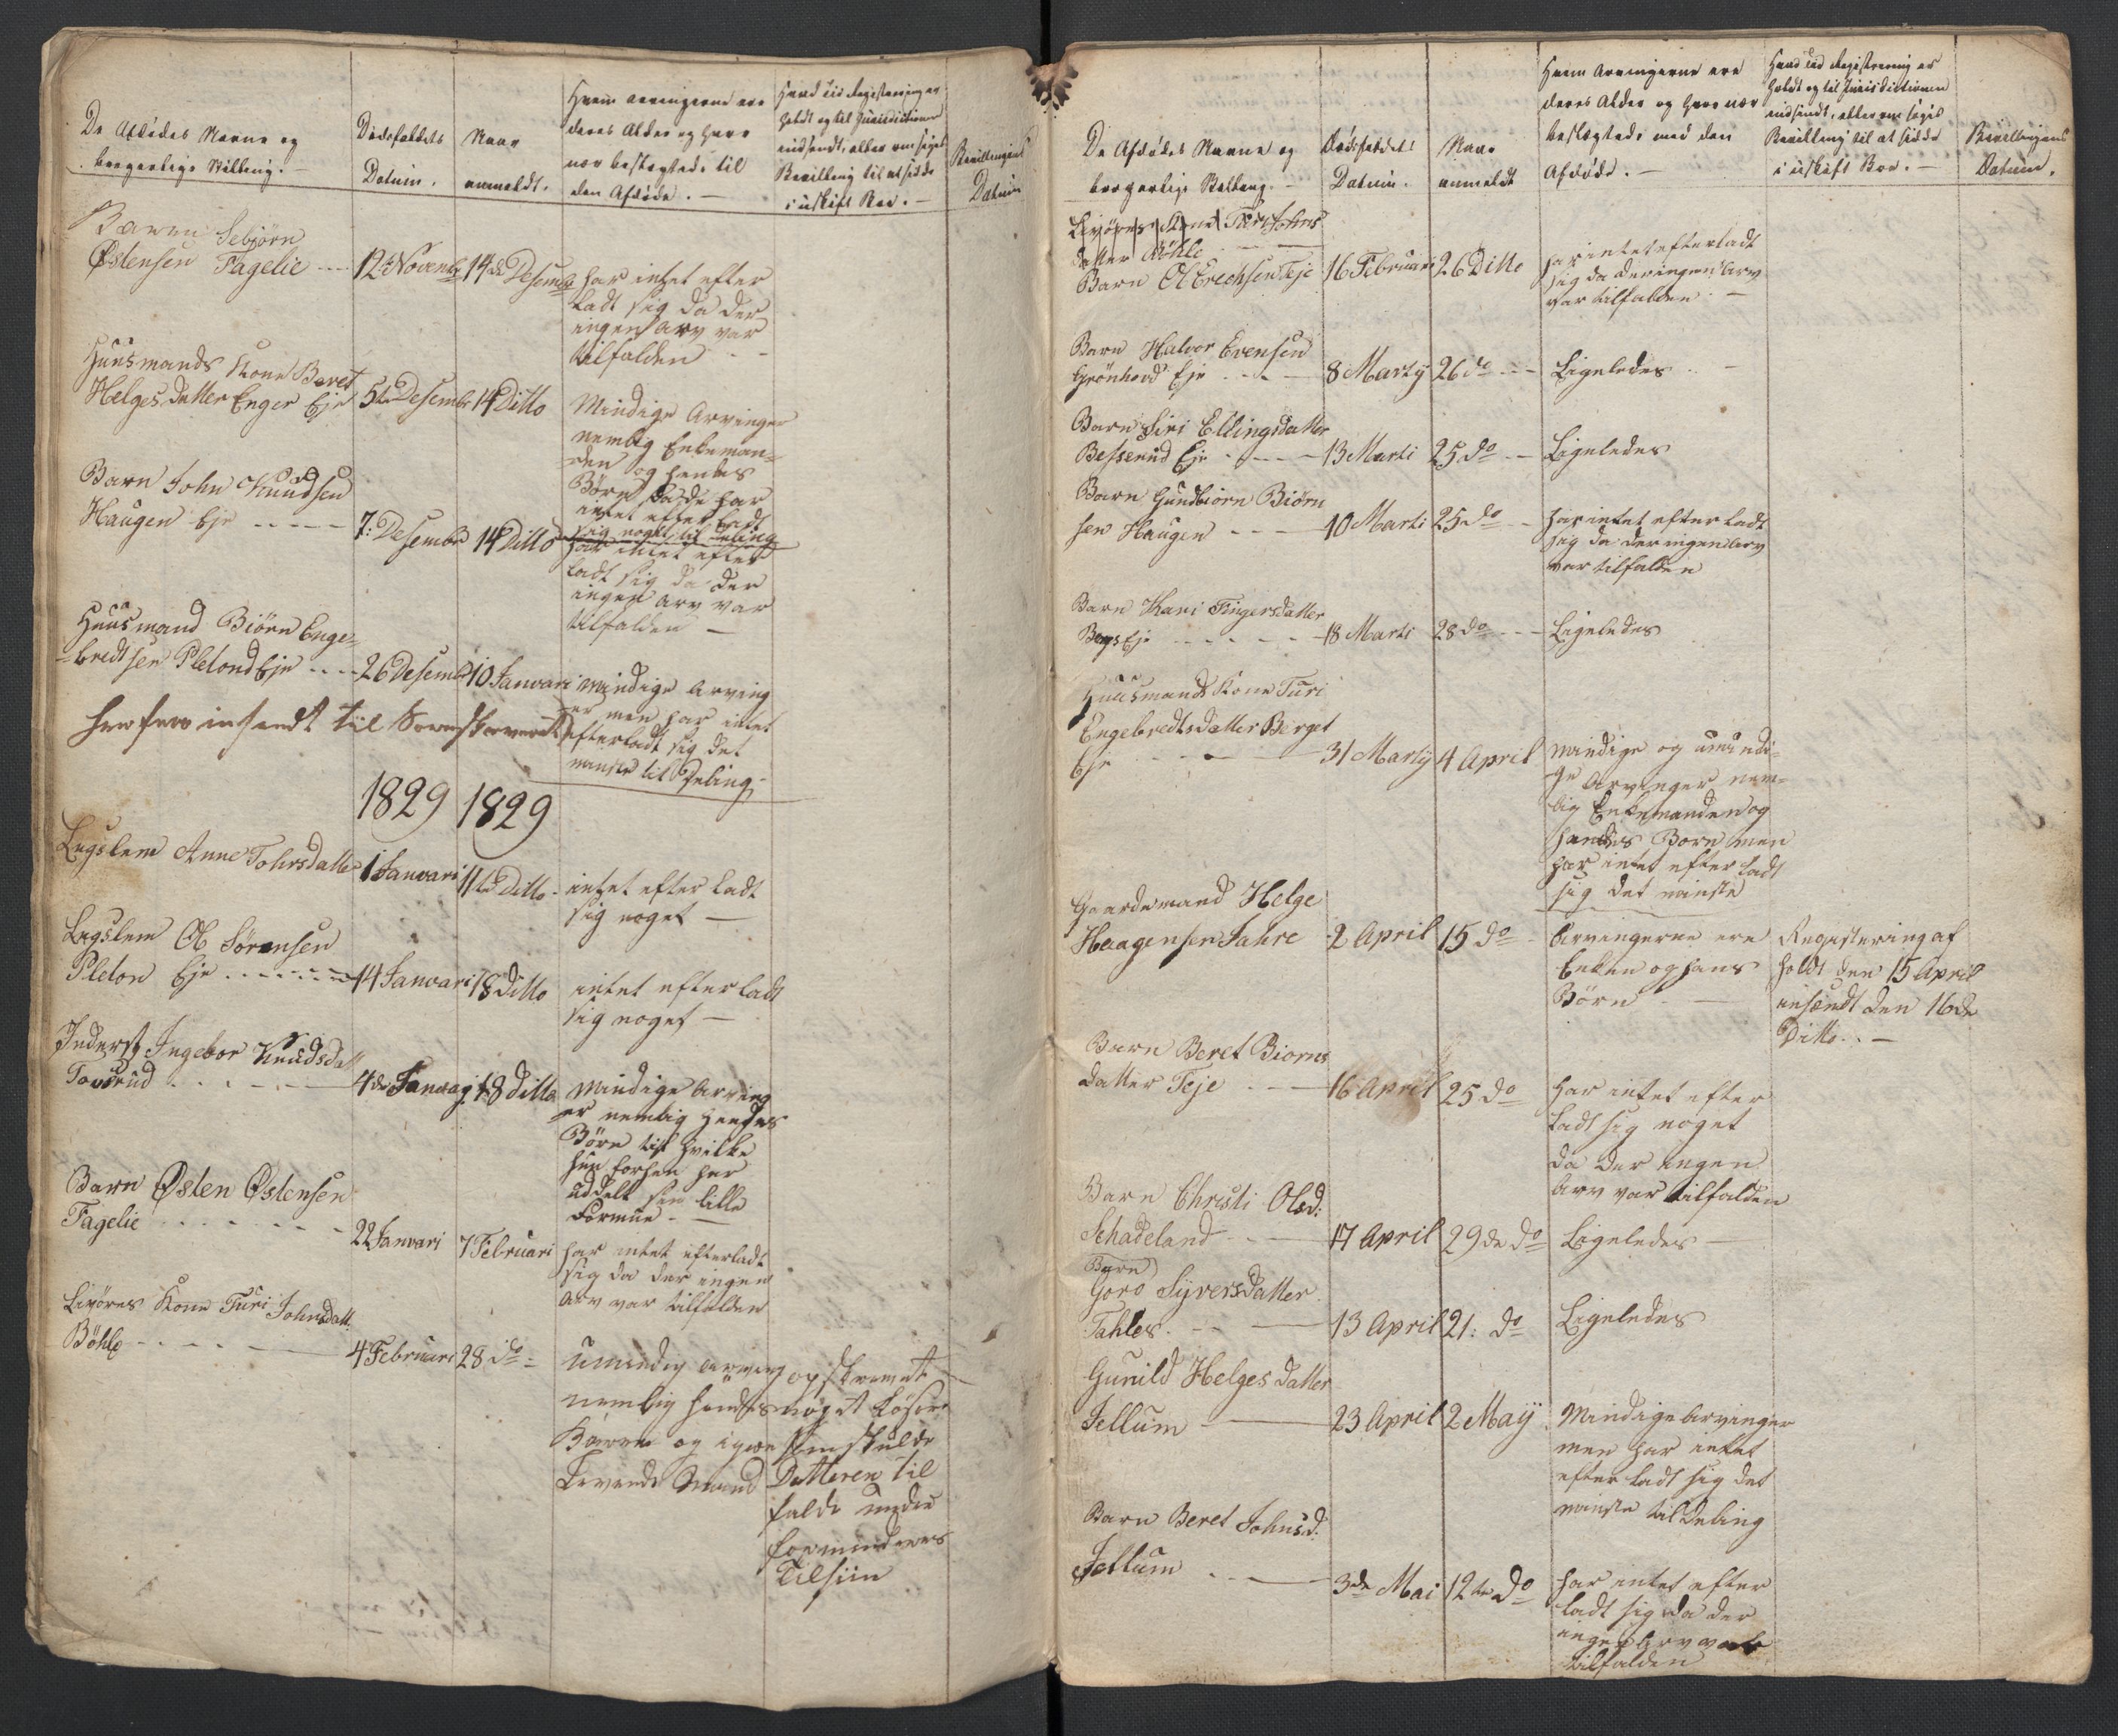 De Afdødes Navne og
borgerlige Stilling. –
Dødsfaldets
Datum.
Naar
anmeldt.
Hvem Arvingerne ere
deres Alder og hvor
nær beslægtede til
den Afdøde. –
Hvad tid Registrering er
holdt og til Jurisdictionen
indsendt, eller om søges
Bevilling til at sidde
i uskift Boe. –
Bevillingens
Datum
Barn Sebjörn
Østensen Fagelie
12te Novembr
14de Desembr
har intet efter
ladt sig da der
ingen Arv var
tilfalden
Huusmands Kone Beret
Helgesdatter Enger Eje
5te Desembr
14 Ditto
Mindige Arvinger
nemlig Enkeman-
den og hendes
Börn da de har
intet efter ladt
sig noget til Deling
Barn John Knudsen
Haugen Eje
7: Desembr
14 Ditto
har intet efter
ladt sig da der
ingen Arv var
tilfalden –
Huusmand Biörn Enge-
bredtsen Pletond Eje
26 Desembr
10 Januari
mindige Arving
er men har intet
efterladt sig det
minste til Deling
herfra insendt til Sorenskriveren
1829
1829
Legslem Anne Tohrsdatter
1 Januari
11te Ditto
intet efter ladt
sig noget –
Legslem Ol Sörensen
Pleton Eje
14 Januari
18 Ditto
intet efter ladt
sig noget –
Inderst Ingebor Knudsdatt
Tovsrud
4de Januarj
18 ditto
Mindige Arving
er nemlig hendes
Börn til hvilke
hun forhen har
uddelt sin lille
Formue –
Barn Østen Østensen
Fagelie
22 Januari
7 Februari
har intet efterladt
sig da der ingen
Arv var tilfalden
Kone Turi Johnsdatt:
Böhle
4 Februari
28 do
Umindig Arving
nemlig hendes
Barn og igien
Levende Mand
opskrevet
noget Løsöre
som skulde
Datteren til
falde under
formynderes
Tilsiin
De Afdødes Navne og
borgerlige Stilling. –
Dødsfaldets
Datum.
Naar
anmeldt
Hvem Arvingerne ere
deres Alder og hvor nær
beslægtede med den
Afdøde. –
Hvad tid Registrering er
holdt og til Jurisdictionen
indsendt, eller om søges
Bevilling til at sidde
i uskift Boe. –
Bevillingens
Datum.
Kone Turi Johns
datter Böhle
Barn Ol Erichsen Teje
16 Februari
26 Ditto
har intet efterladt
sig da der ingen Arv
var tilfalden –
Barn Halvor Evensen
Grönhovd Eje
8 Martij
26 do
Ligeledes
Barn Siri Ellingsdatter
Besserud Eje
13 Marti
25 do
Ligeledes
Barn Gundbiörn Biörn
sen Haugen
10 Marti
25 do
har intet efterladt
sig da der ingen Arv
var tilfalden
Barn Kari Fingersdatter
Bergs Eje
18 Marti
28 do
Ligeledes
Huusmands Kone Turi
Engebredtsdatter Berget
Eje
31 Martij
4 April
mindige og umindi-
ge Arvinger nem-
lig Enkemanden og
hendes Born men
har intet efter ladt
sig det minste
Gaardemand Helge
Haagensen Jahre
2 April
15 do
Arvingerne ere
Enken og hans
Börn –
Registering af
holdt den 15 April
insendt den 16de
Ditto. –
Barn Beret Biorns
datter Teje
16 April
25 do
har intet efter
ladt sig noget
da der ingen
Arv var tilfalden
Barn Christi Olsd:
Schadeland
17 April
29de do
Ligeledes –
Barn
Goro Syversdatter
Tahles
13 April
21: do
Ligeledes
Gunild Helgesdatter
Jellum
23 April
2 Maij
Mindige Arvinger
men har intet
efter ladt sig det
minste til Deling
Barn Beret Johnsd:
Jellum
3de Mai
12te do
har intet efter
ladt sig da der
ingen Arv var
tilfalden